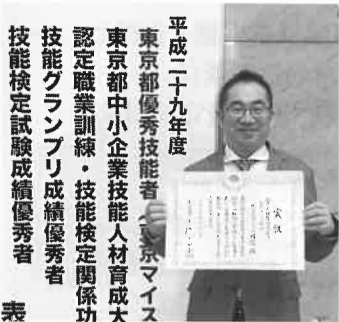 平成二十九年度
東京都優秀技能者（東京マイス
東京都中小企業技能人材育成大
認定職業訓練・技能検定関係功
技能グランプリ成績優秀者
技能検定試験成績優秀者
表
賞状